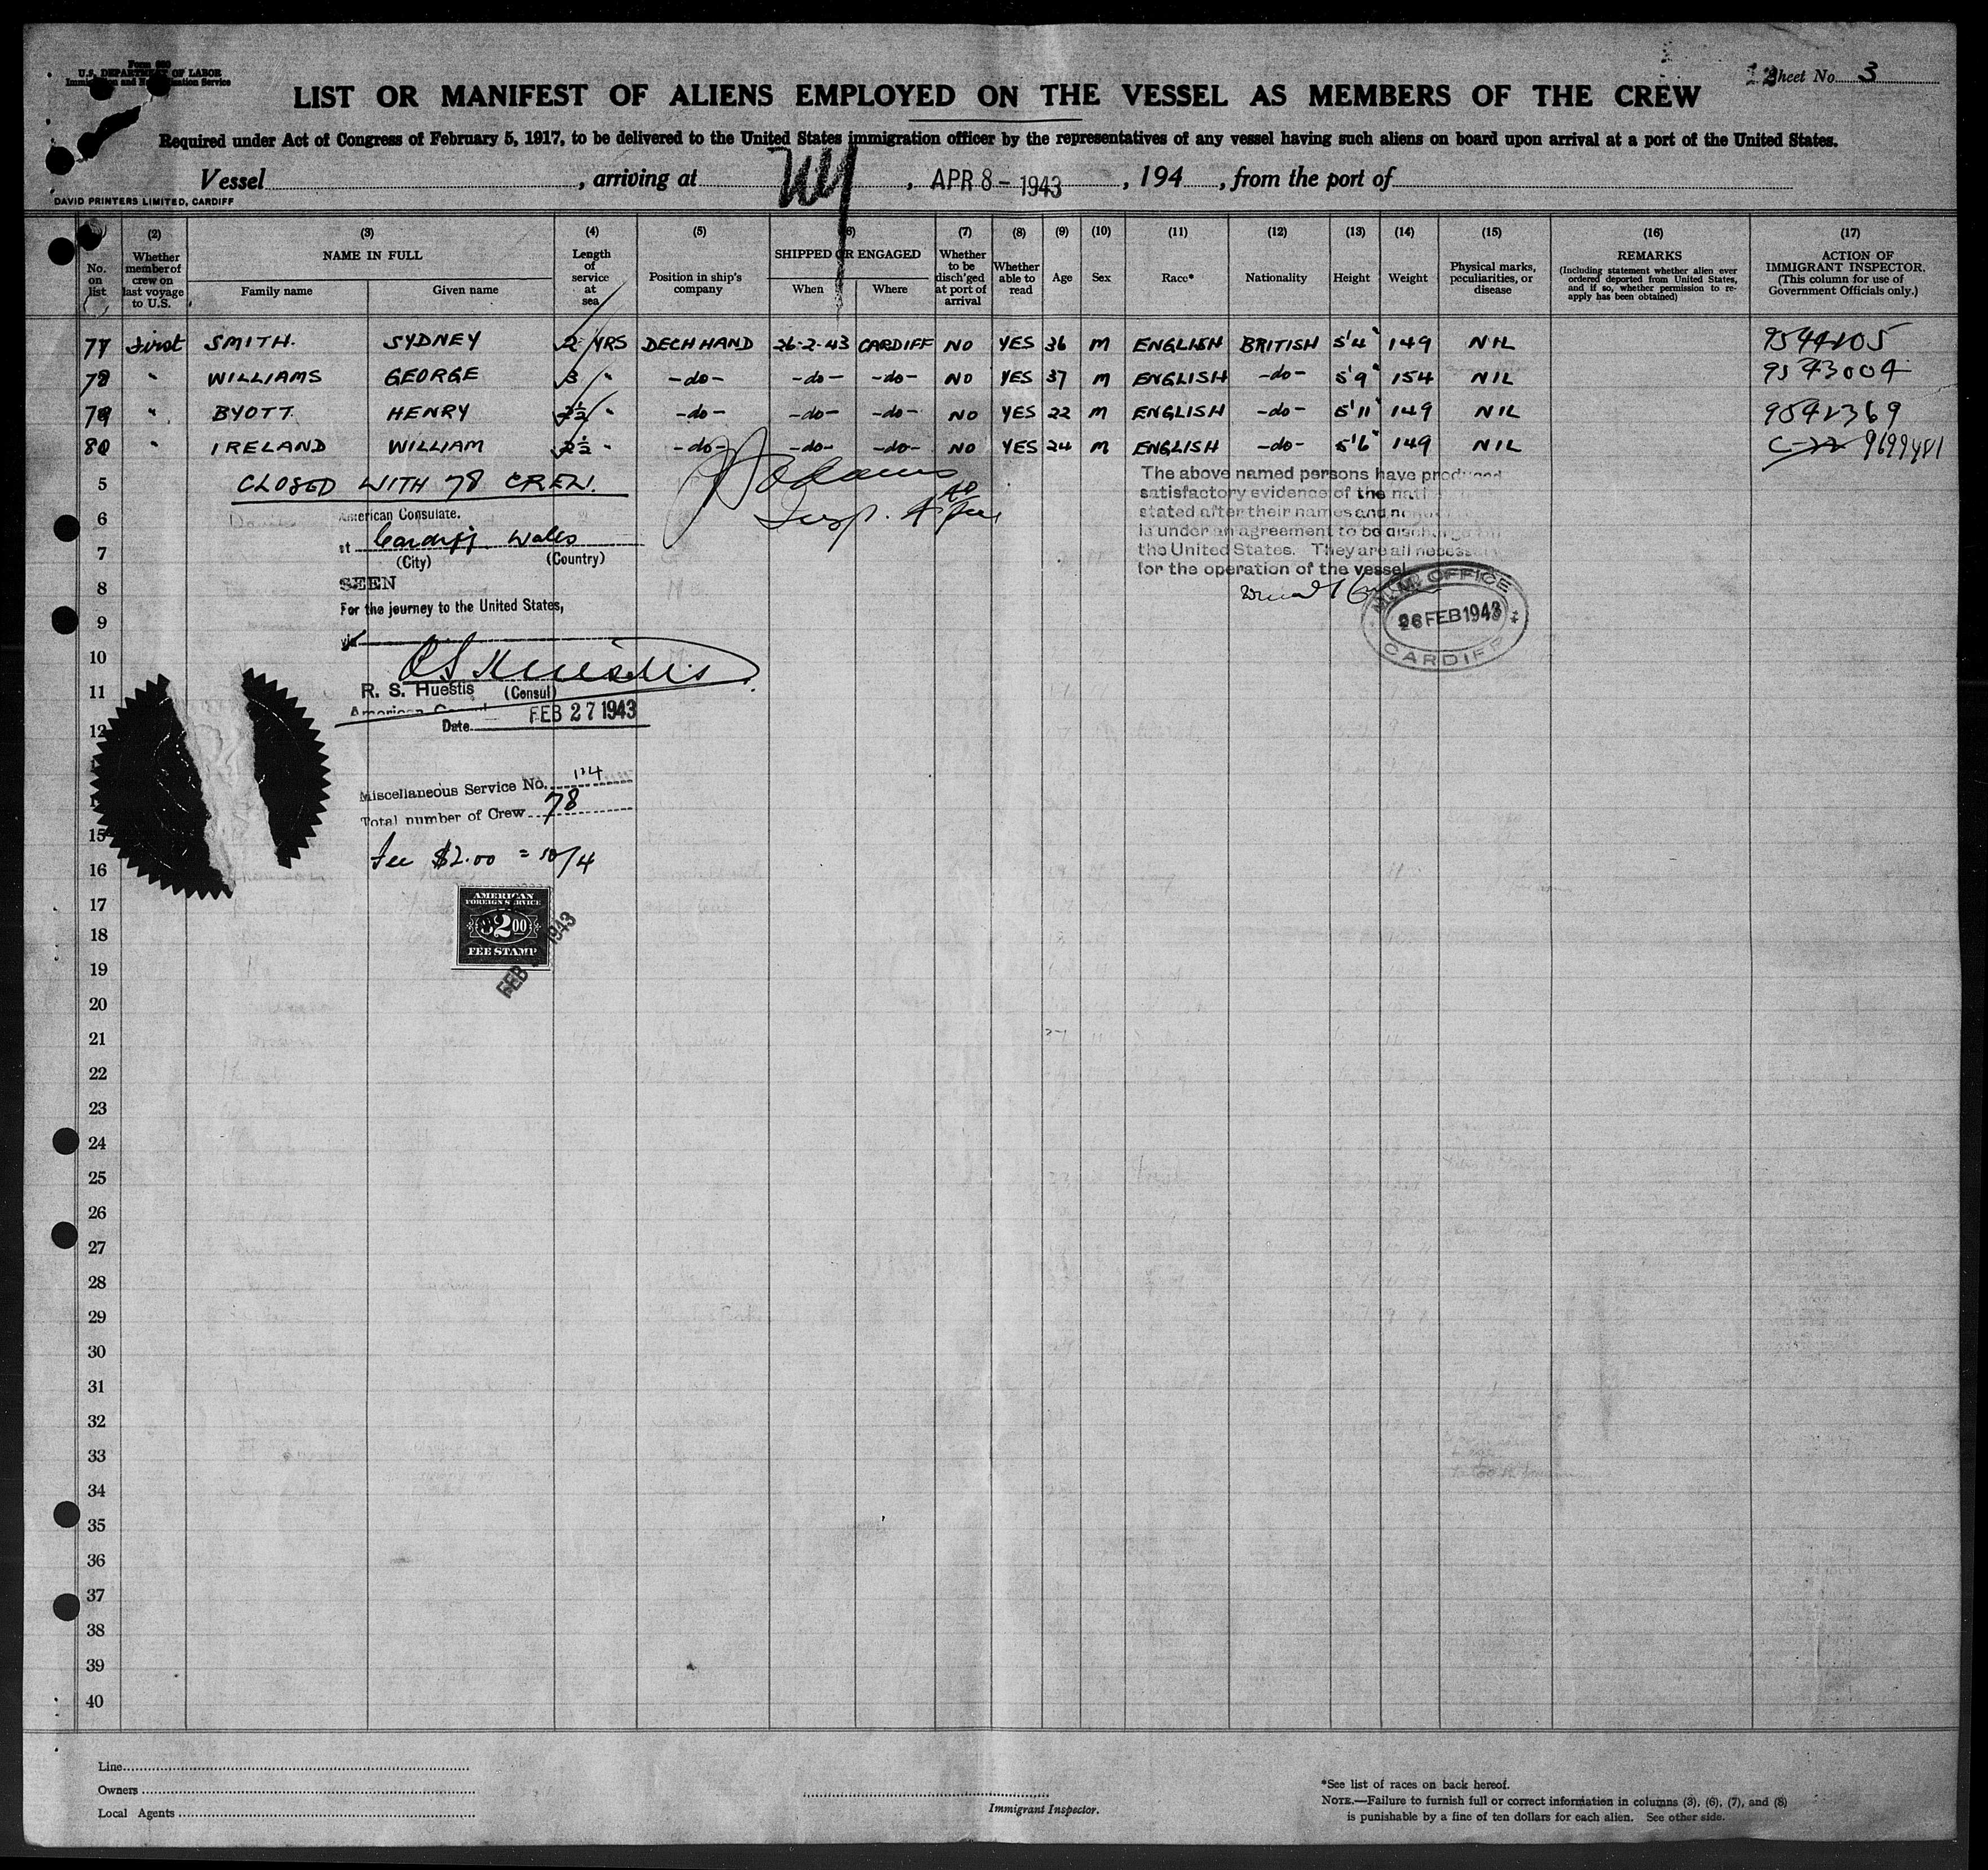 Form 680
U.S. DEPARTMENT OF LABOR
Immigration and Naturalization Service
Sheet No. 3
LIST OR MANIFEST OF ALIENS EMPLOYED ON THE VESSEL AS MEMBERS OF THE CREW
Required under Act of Congress of February 5, 1917, to be delivered to the United States immigration officer by the representatives of any vessel having such aliens on board upon arrival at a port of the United States.
Vessel , arriving at NY , APR 8 - 1943 , 194 , from the port of
DAVID PRINTERS LIMITED, CARDIFF
(2) (3) (4) (5) (6) (7) (8) (9) (10) (11) (12) (13) (14) (15) (16) (17)
No. on list
Whether member of crew on last voyage to U.S.
NAME IN FULL
Family name Given name
Length of service at sea
Position in ship's company
SHIPPED OR ENGAGED
When Where
Whether to be disch'ged at port of arrival
Whether able to read
Age
Sex
Race*
Nationality
Height
Weight
Physical marks, peculiarities, or disease
REMARKS
(Including statement whether alien ever ordered deported from United States, and if so, whether permission to re-apply has been obtained)
ACTION OF IMMIGRANT INSPECTOR.
(This column for use of Government Officials only.)
77 First SMITH. SYDNEY 2 YRS DECH HAND 26-2-43 CARDIFF NO YES 36 M ENGLISH BRITISH 5'4" 149 NIL
78 " WILLIAMS GEORGE 3 " -do- -do- -do- NO YES 37 M ENGLISH -do- 5'9" 154 NIL 9543004
79 " BYOTT HENRY 2½ " -do- -do- -do- NO YES 22 M ENGLISH -do- 5'11" 149 NIL 9542369
80 " IRELAND WILLIAM 2½ " -do- -do- -do- NO YES 24 M ENGLISH -do- 5'6" 149 NIL
5 CLOSED WITH 78 CREW.
The above named persons have produced
satisfactory evidence of the
stated after their names and
is under an agreement to be
the United States. They are all
for the operation of the vessel
6 American Consulate.
at Cardiff Wales
7 (City) (Country)
8 SEEN
For the journey to the United States,
9 via
M.M. OFFICE
26 FEB 1943
CARDIFF
10
11 R. S. Huestis (Consul)
American Consul
12 Date FEB 27 1943
Miscellaneous Service No. 124
Total number of Crew 78
15
Fee $2.00 = 10/4
16
AMERICAN
FOREIGN SERVICE
$2.00
FEE STAMP
FEB 1943
17
18
19
20
21
22
23
24
25
26
27
28
29
30
31
32
33
34
35
36
37
38
39
40
Line
Owners
Local Agents
Immigrant Inspector.
*See list of races on back hereof.
NOTE.—Failure to furnish full or correct information in columns (3), (6), (7), and (8)
is punishable by a fine of ten dollars for each alien. See other side.